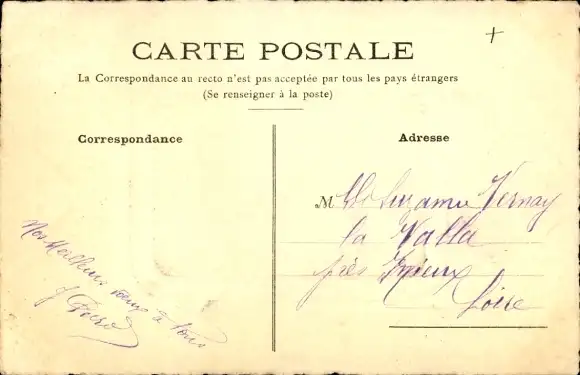 CARTE POSTALE
La Correspondance au recto n'est pas acceptée par tous les pays étrangers
(Se renseigner à la poste)
Correspondance
Adresse
Mlle Suzanne Vernay
la Valla
près Izieux
Loire
Nos Meilleurs vœux à tous
J